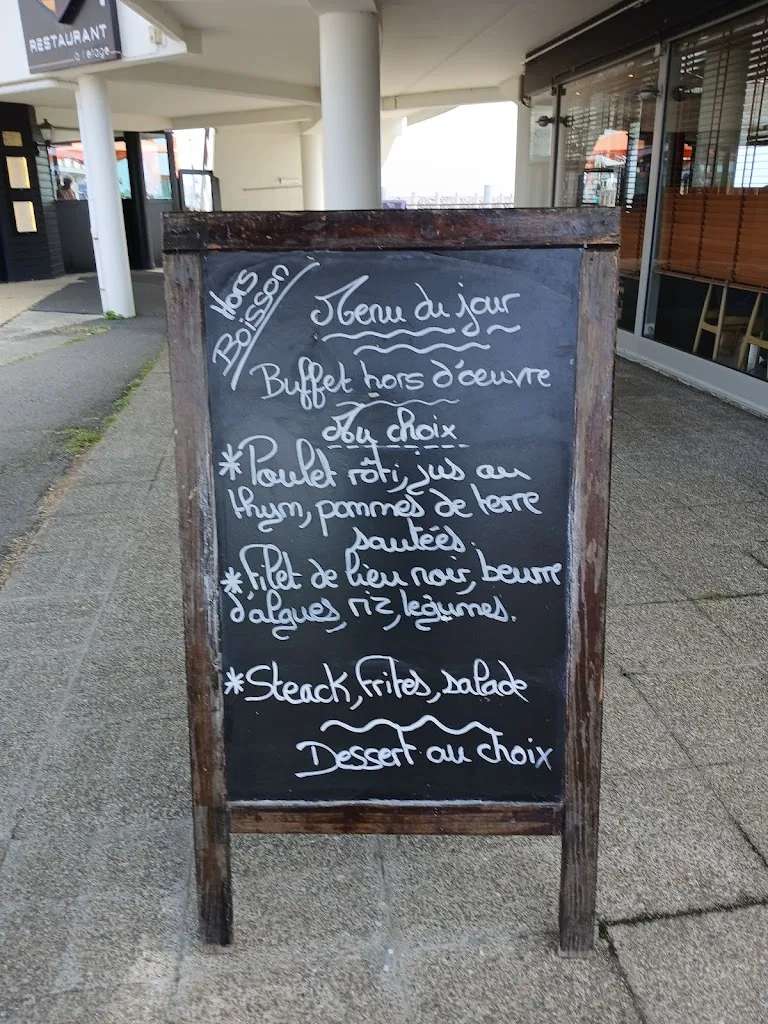 RESTAURANT
à l'étage
Hors
Boisson
Menu du jour
Buffet hors d'œuvre
Au choix
*Poulet rôti, jus au
thym, pommes de terre
sautées.
*Filet de lieu noir, beurre
d'algues, riz, légumes.
*Steack, frites, salade
Dessert au choix